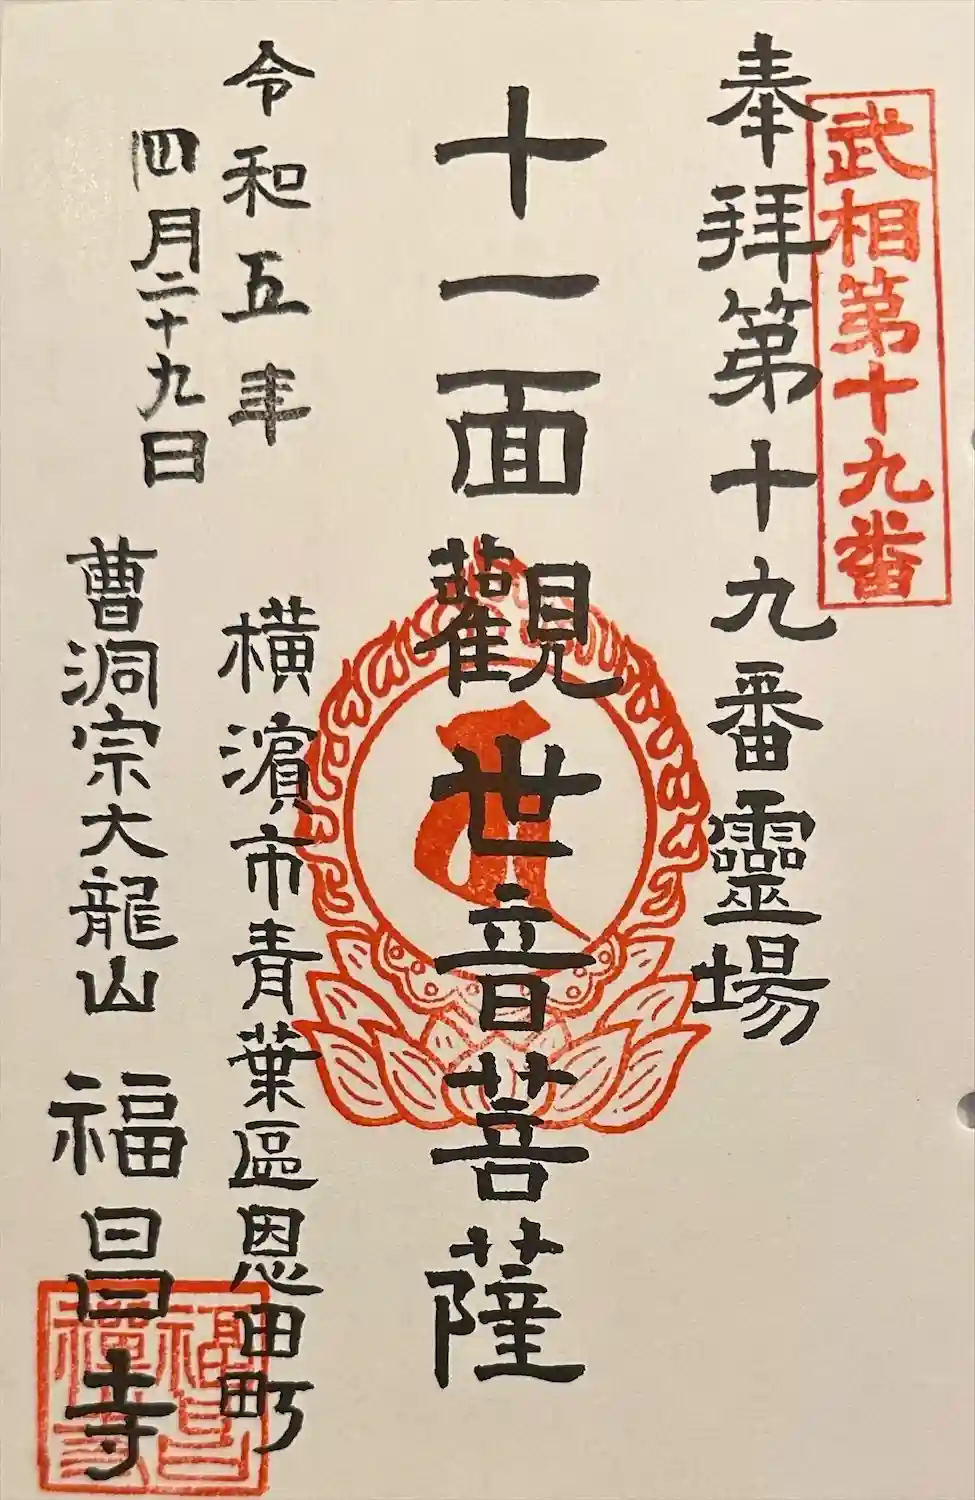 武相第十九番
奉拜第十九番靈場
十一面觀世音菩薩
令和五年
四月二十九日
橫濱市青葉區恩田町
曹洞宗大龍山 福昌寺